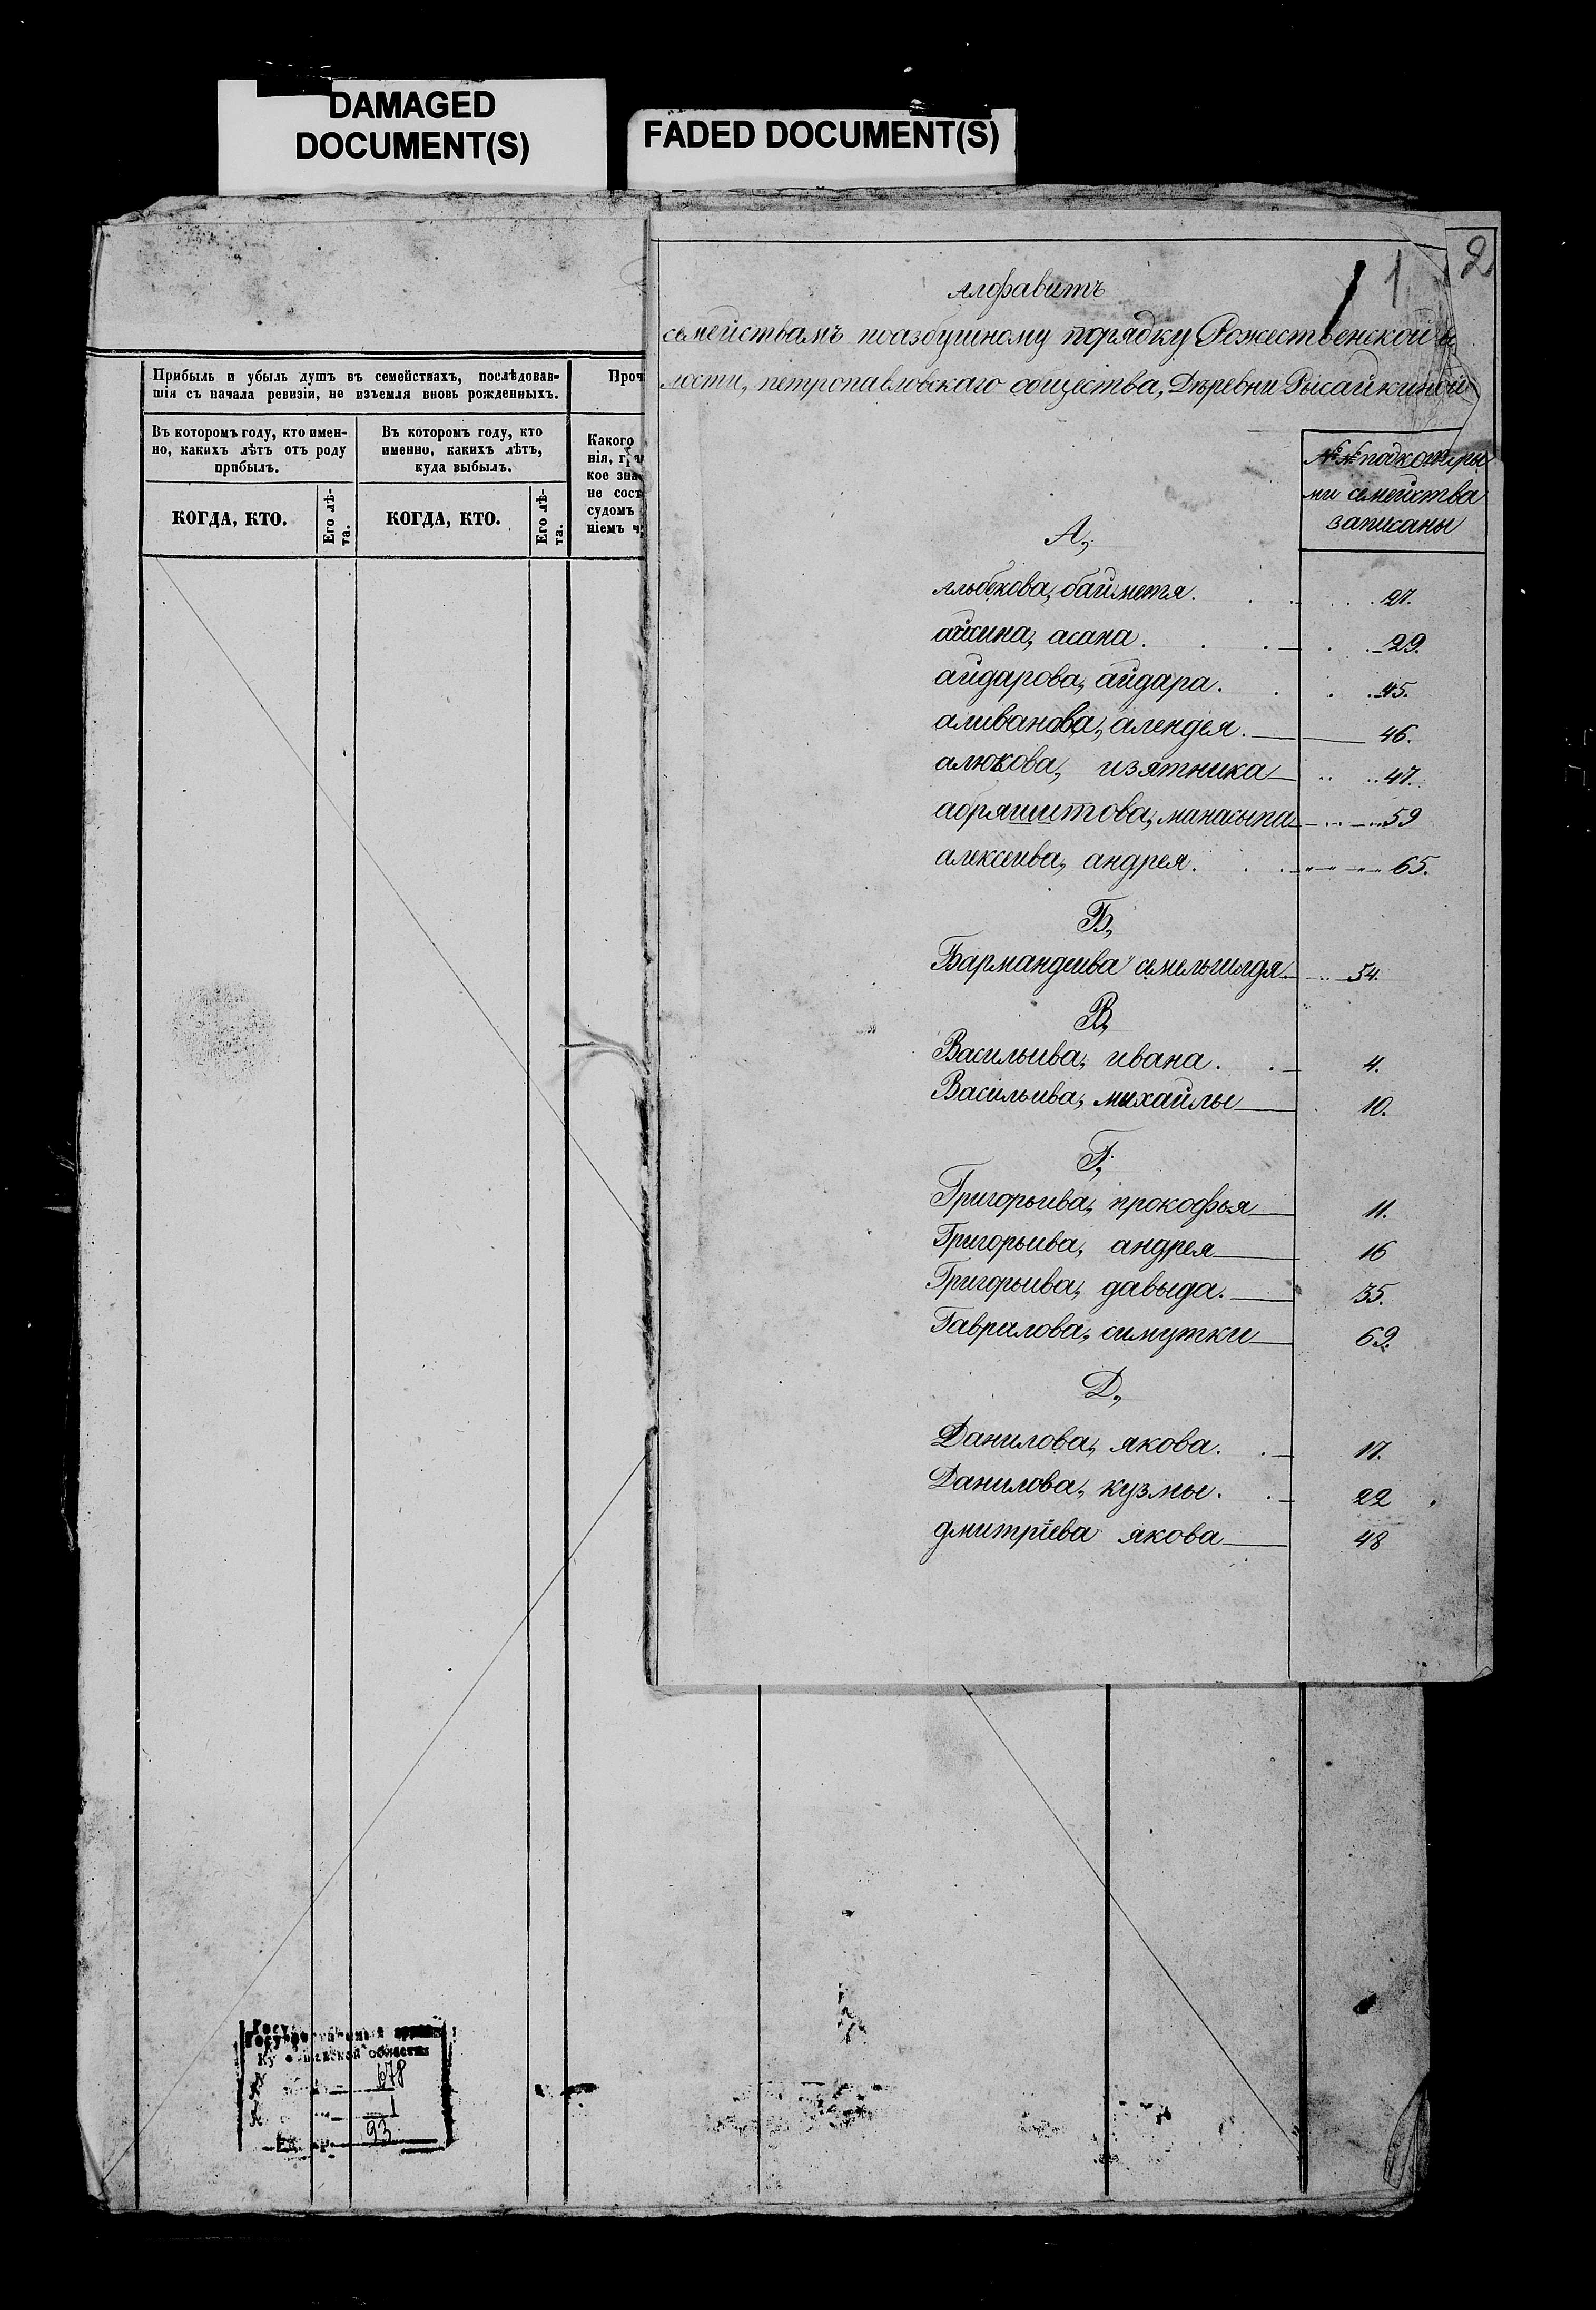 DAMAGED
DOCUMENT(S)
FADED DOCUMENT(S)
Прибыль и убыль душъ въ семействахъ, послѣдовав-
шія съ начала ревизіи, не изъемля вновь рожденныхъ.
Проч
Въ которомъ году, кто имен-
но, какихъ лѣтъ отъ роду
прибылъ.
Въ которомъ году, кто
именно, какихъ лѣтъ,
куда выбылъ.
Какого
нія, г
кое зна
не сост
судомъ
ніемъ ч
КОГДА, КТО.
Его лѣ-
та.
КОГДА, КТО.
Его лѣ-
та.
678
1
93
1 2
Алфавитъ
семействамъ поазбушному порядку Рожественской в
лости, петропавловскаго общества, Деревни Рысайкиной
№№ подкоторы
ми семейства
записаны
А,
Альбекова, байметя. 27.
айсина, асана. 29.
айдарова, айдара. 45.
аливанова, алендея. 46.
алюкова, изятника 47.
абряшитова, манасыпа 59
алексеива, андрея. 65.
Б,
Бармандеива семельгилдя 54.
В,
Васильива, ивана. 4.
Васильива, михайлы 10.
Г,
Григорьива, прокофья 11.
Григорьива, андрея 16
Григорьива, давыда. 35.
Гаврилова, симутки 69.
Д,
Данилова, якова. 17.
Данилова, кузмы. 22
дмитріева якова 48